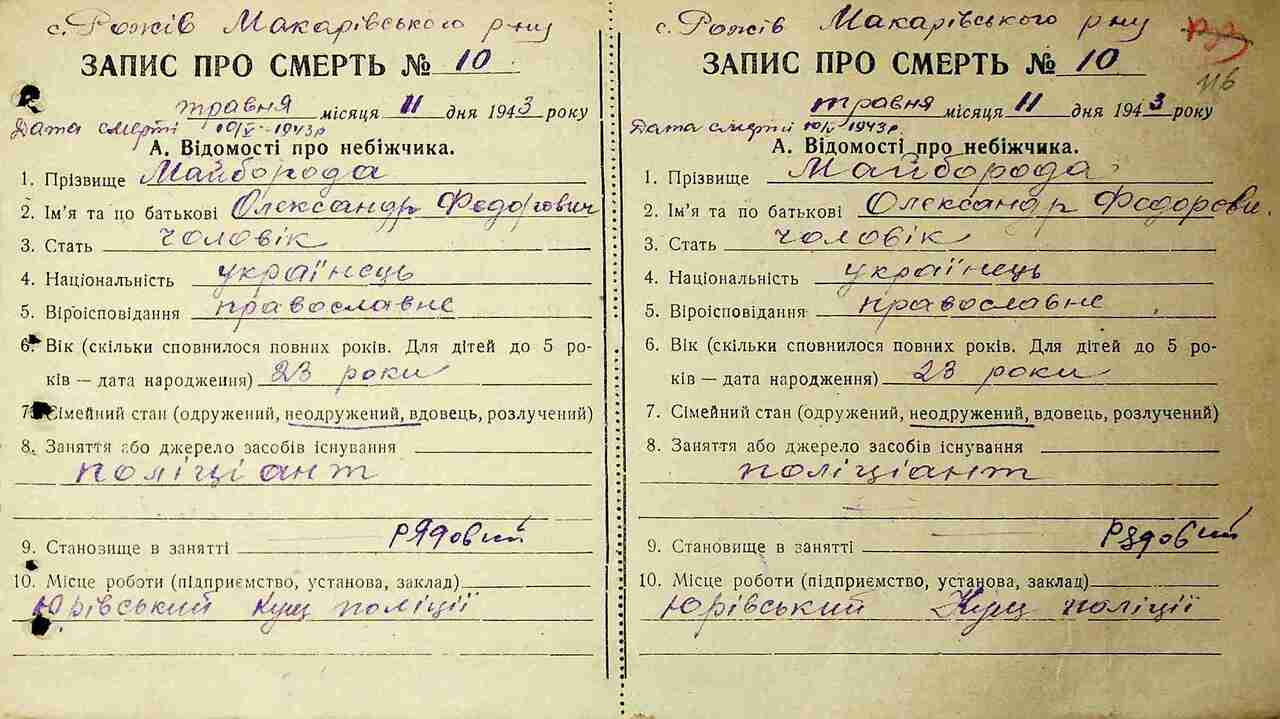 с. Рожів Макарівського р-ну
ЗАПИС ПРО СМЕРТЬ № 10
травня місяця 11 дня 1943 року
Дата смерті 10/V - 1943 р
А. Відомості про небіжчика.
1. Прізвище Майборода
2. Ім'я та по батькові Олександр Федорович
3. Стать чоловік
4. Національність українець
5. Віроісповідання православне
6. Вік (скільки сповнилося повних років. Для дітей до 5 ро-
ків — дата народження) 23 роки
7. Сімейний стан (одружений, неодружений, вдовець, розлучений)
8. Заняття або джерело засобів існування
поліціант
9. Становище в занятті рядовий
10. Місце роботи (підприємство, установа, заклад)
Юрівський Кущ поліції
с. Рожів Макарівського р-ну
116
ЗАПИС ПРО СМЕРТЬ № 10
травня місяця 11 дня 1943 року
Дата смерті 10/V - 1943 р.
А. Відомості про небіжчика.
1. Прізвище Майборода
2. Ім'я та по батькові Олександр Федорови.
3. Стать чоловік
4. Національність українець
5. Віроісповідання православне
6. Вік (скільки сповнилося повних років. Для дітей до 5 ро-
ків — дата народження) 23 роки
7. Сімейний стан (одружений, неодружений, вдовець, розлучений)
8. Заняття або джерело засобів існування
поліціант
9. Становище в занятті рядовий
10. Місце роботи (підприємство, установа, заклад)
Юрівський Кущ поліції